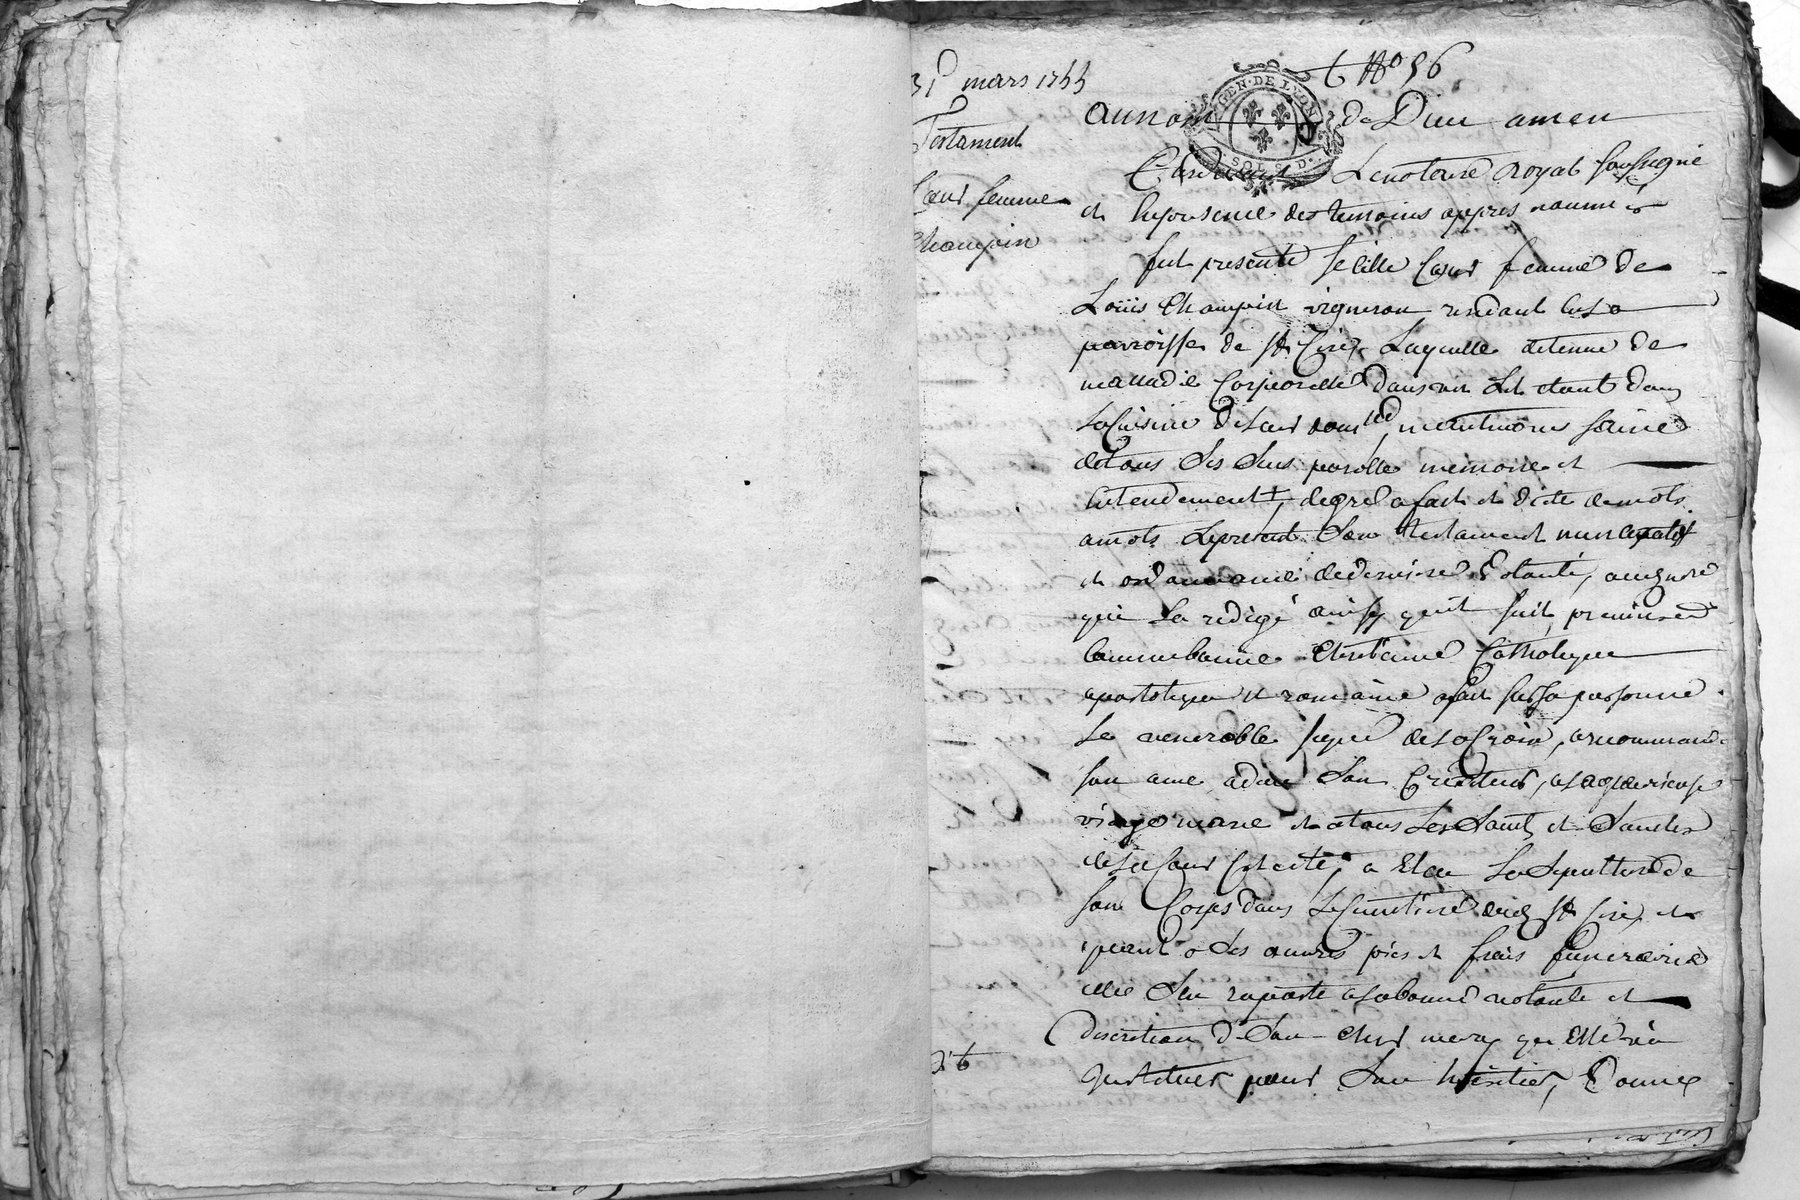 31 mars 1755
Testament
femme
Champin
t No 56
GEN · DE LYON
SOLS D.
au nom de Dieu amen
Pardevant Le notaire Royal soussigné
et En presence des temoins appres nommes
fut presente Sebille femme de
Loüis Champin vigneron residant en la
parroisse de St Cire, Laquelle detenue de
malladie Corporelle dans un Lit etant dans
La Cuisine de Leur domlle neantmoins saine
de tous Ses Sens parolle memoire et
Entendement, de gré a fait et dicté de mots
a mots Le present Son testament nuncupatif
et ordonnance de derniere Volonté, a nous no.re
qui La redigé ainsy quil suit, premierement
Comme bonne Chretienne Catholique
apostolique et romaine a fait sur sa personne
Le venerable signe de la Croix, a recommandé
son ame a dieu Son Createur, a la glorieuse
vierge marie et a tous Les Saints et Saintes
de la Cour Celeste, a Elu La Sepulture de
son Corps dans Le Cimetiere dud. St Cire, et
quant a Ses œuvres pies et frais funeraires
elle S'en raporte a la bonne volonté et
discretion de Son Cher mary qu'Elle va
Instituer pour Son heritier, Donne